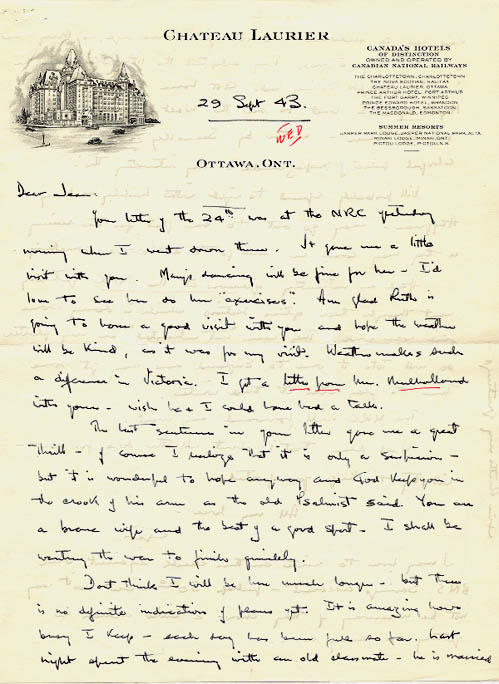 CHATEAU LAURIER
CANADA'S HOTELS
OF DISTINCTION
OWNED AND OPERATED BY
CANADIAN NATIONAL RAILWAYS
THE CHARLOTTETOWN, CHARLOTTETOWN
THE NOVA SCOTIAN, HALIFAX
CHATEAU LAURIER, OTTAWA
PRINCE ARTHUR HOTEL, PORT ARTHUR
THE FORT GARRY, WINNIPEG
PRINCE EDWARD HOTEL, BRANDON
THE BESSBOROUGH, SASKATOON
THE MACDONALD, EDMONTON
SUMMER RESORTS
JASPER PARK LODGE, JASPER NATIONAL PARK, ALTA.
MINAKI LODGE, MINAKI, ONT.
PICTOU LODGE, PICTOU, N.S.
29 Sept 43.
WED
OTTAWA, ONT.
Dear Jean:
Your letter of the 24th was at the NRC yesterday
morning when I went down there. It gave me a little
visit with you. Mary's dancing will be fine for her - I'd
love to see her do her "exercises". Am glad Ruth is
going to have a good visit with you and hope the weather
will be kind, as it was for my visit. Weather makes such
a difference in Victoria. I got a letter from Mr. Mulholland
with yours - wish he & I could have had a talk.
The last sentence in your letter gave me a great
thrill - of course I realize that it is only a suspicion -
but it is wonderful to hope anyway and God keep you in
the crook of his arm as the old Psalmist said. You are
a brave wife and the best of a good sport - I shall be
wanting the war to finish quickly.
Dont think I will be here much longer - but there
is no definite indication of plans yet. It is amazing how
busy I keep - each day has been full so far. Last
night spent the evening with an old classmate - he is married